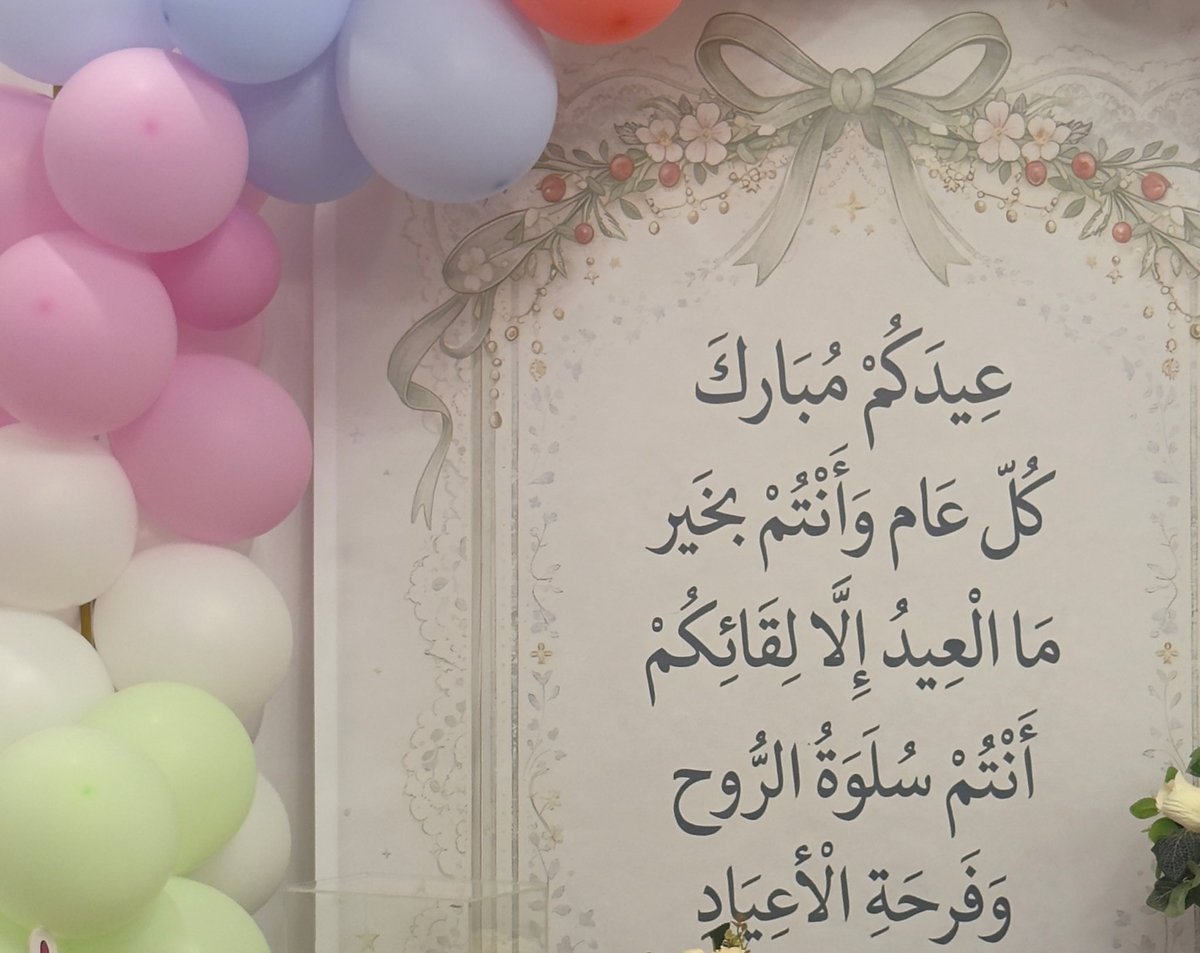 عِيدَكُمْ مُبَارَكَ
كُلّ عَام وَأَنْتُمْ بخَير
مَا الْعِيدُ إِلَّا لِقَائِكُمْ
أَنْتُمْ سُلَوَةُ الرُّوح
وَفَرحَةِ الْأعِيَادِ